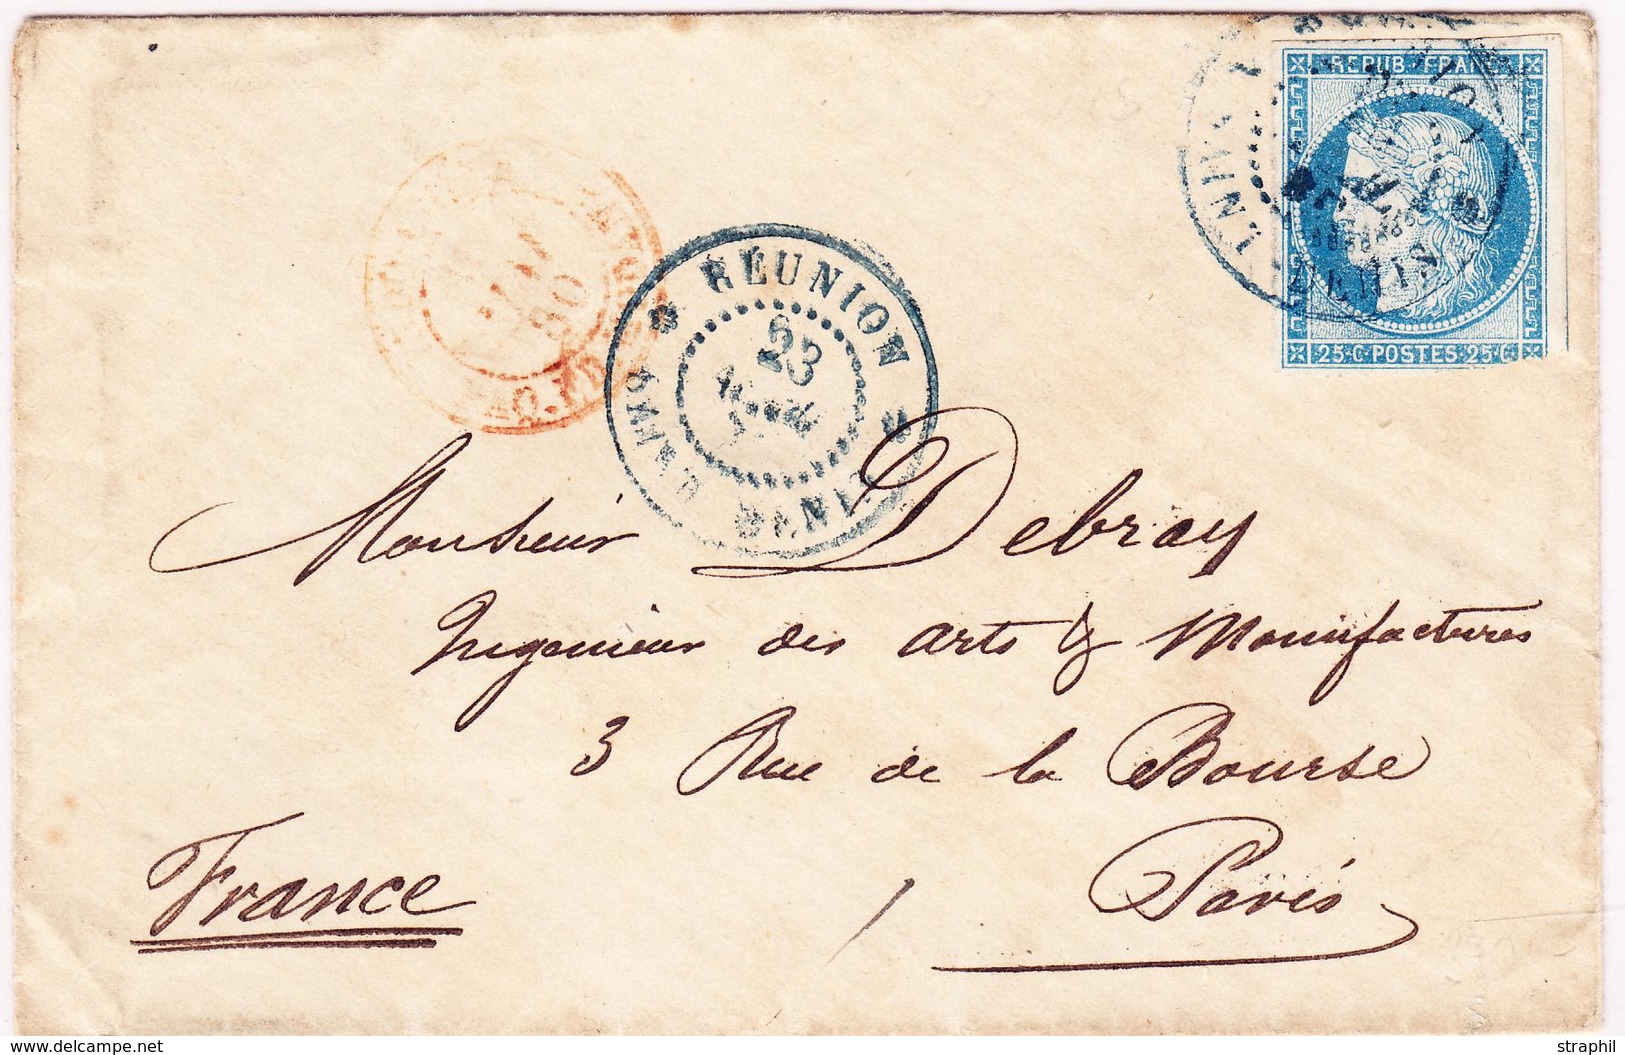 REPUB. FRANC
25·C·POSTES·25·C
RÉUNION
23
AVRIL
St DENIS
80
Monsieur Debray
Ingenieur des arts & Manufactures
3 Rue de la Bourse
Paris
France
straphil
delcampe.net